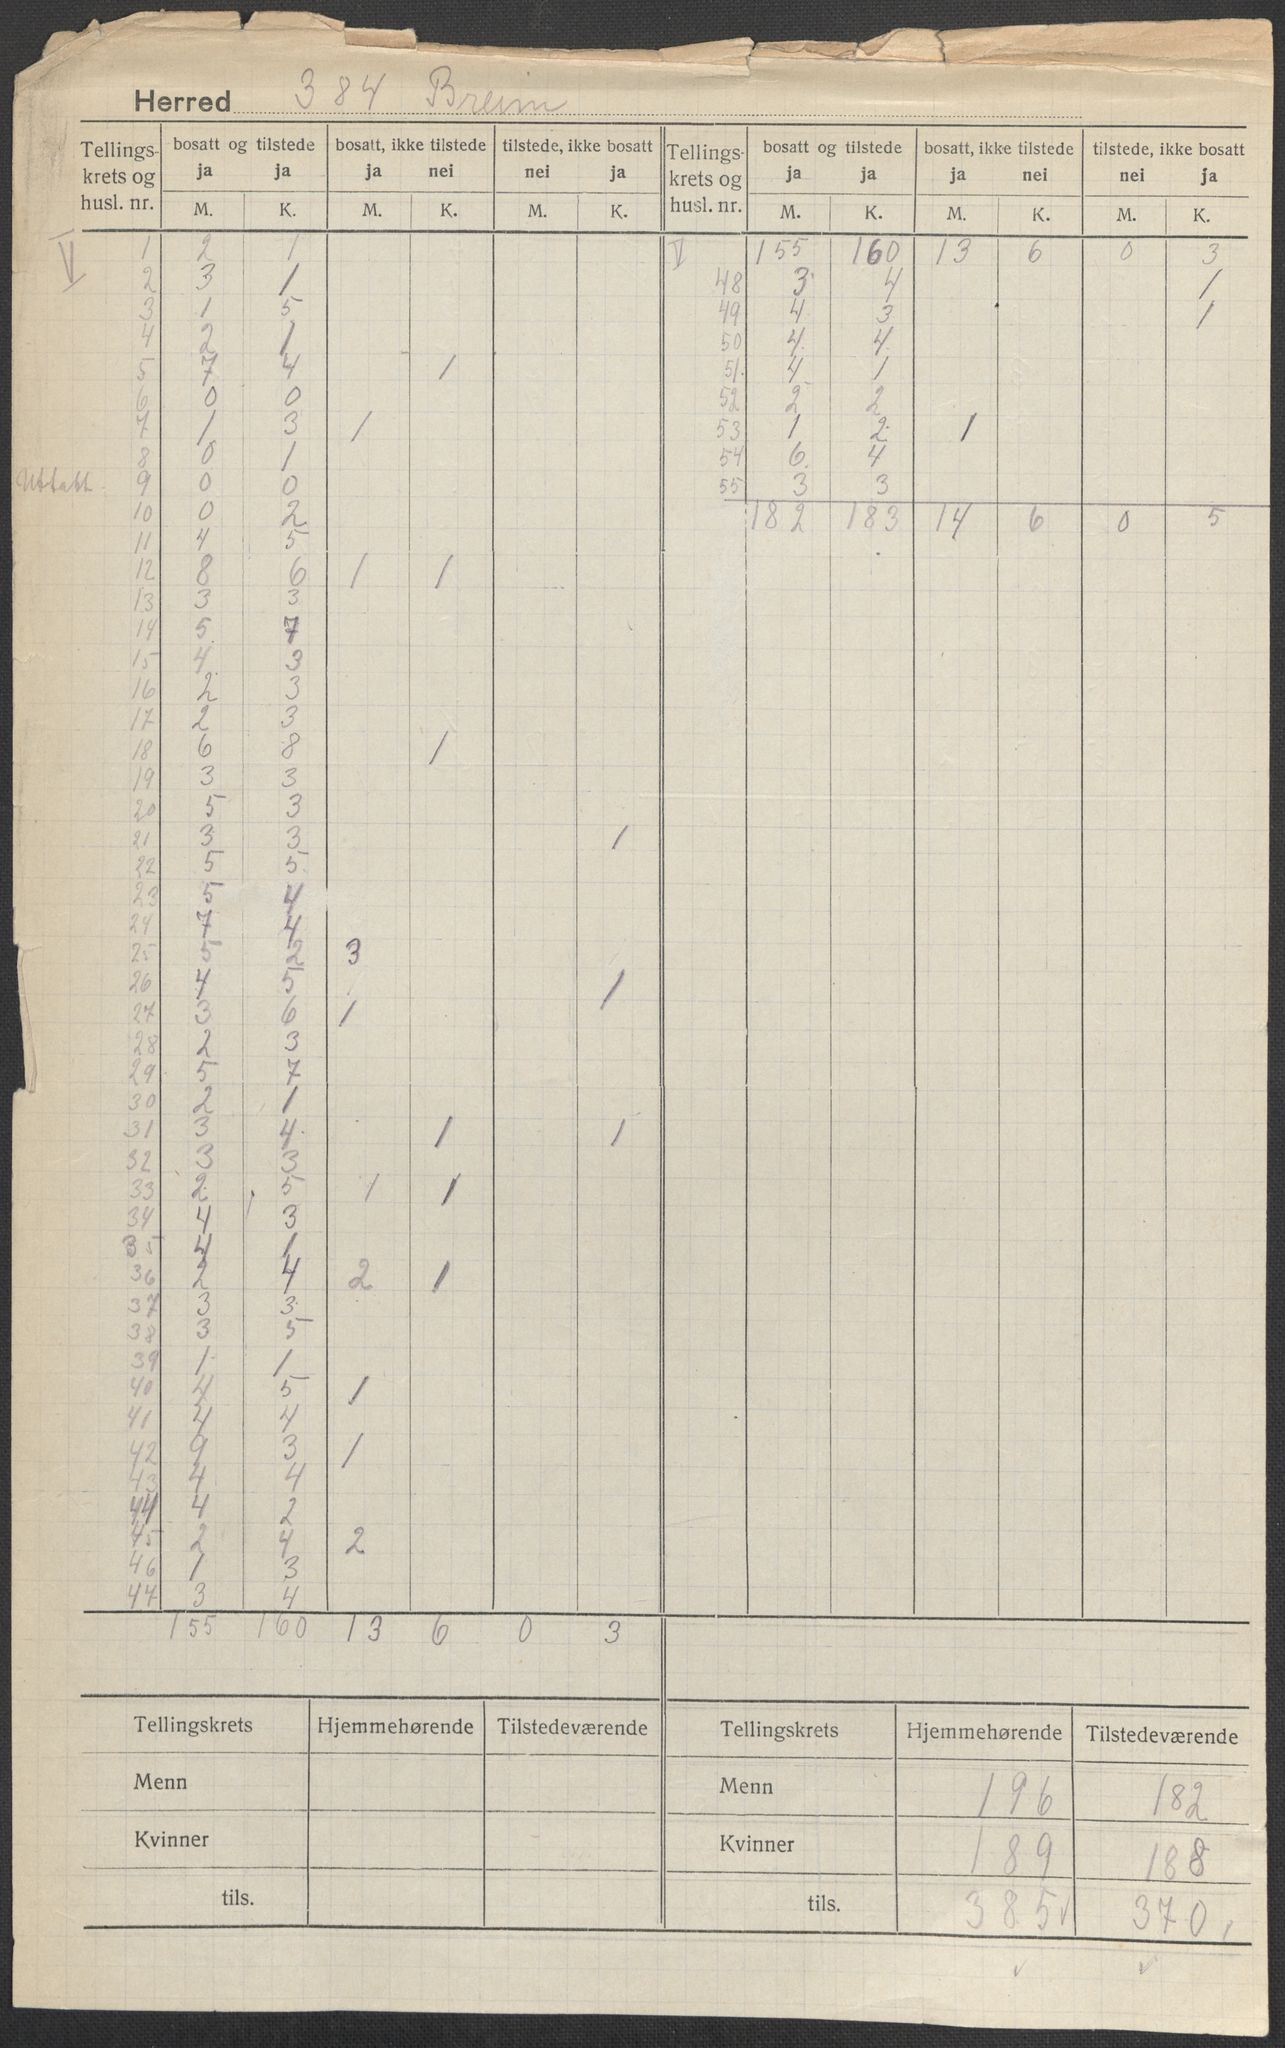 Herred 384 Breim
Tellings- krets og husl. nr. bosatt og tilstede ja ja bosatt, ikke tilstede ja nei tilstede, ikke bosatt nei ja Tellings- krets og husl. nr. bosatt og tilstede ja ja bosatt, ikke tilstede ja nei tilstede, ikke bosatt nei ja
M. K. M. K. M. K. M. K. M. K. M. K.
V 1 2 1 V 155 160 13 6 0 3
2 3 1 48 3 4 1
3 1 5 49 4 3 1
4 2 1 50 4 4
5 7 4 1 51 4 1
6 0 0 52 2 2
7 1 3 1 53 1 2 1
8 0 1 54 6 4
9 0 0 55 3 3
10 0 2 182 183 14 6 0 5
11 4 5
12 8 6 1 1
13 3 3
14 5 7
15 4 3
16 2 3
17 2 3
18 6 8 1
19 3 3
20 5 3
21 3 3 1
22 5 5
23 5 4
24 7 4
25 5 2 3
26 4 5 1
27 3 6 1
28 2 3
29 5 7
30 2 1
31 3 4 1 1
32 3 3
33 2 5 1 1
34 4 3
35 4 1
36 2 4 2 1
37 3 3
38 3 5
39 1 1
40 4 5 1
41 4 4
42 9 3 1
43 4 4
44 4 2
45 2 4 2
46 1 3
47 3 4
155 160 13 6 0 3
Tellingskrets Hjemmehørende Tilstedeværende Tellingskrets Hjemmehørende Tilstedeværende
Menn Menn 196 182
Kvinner Kvinner 189 188
tils. tils. 385 370